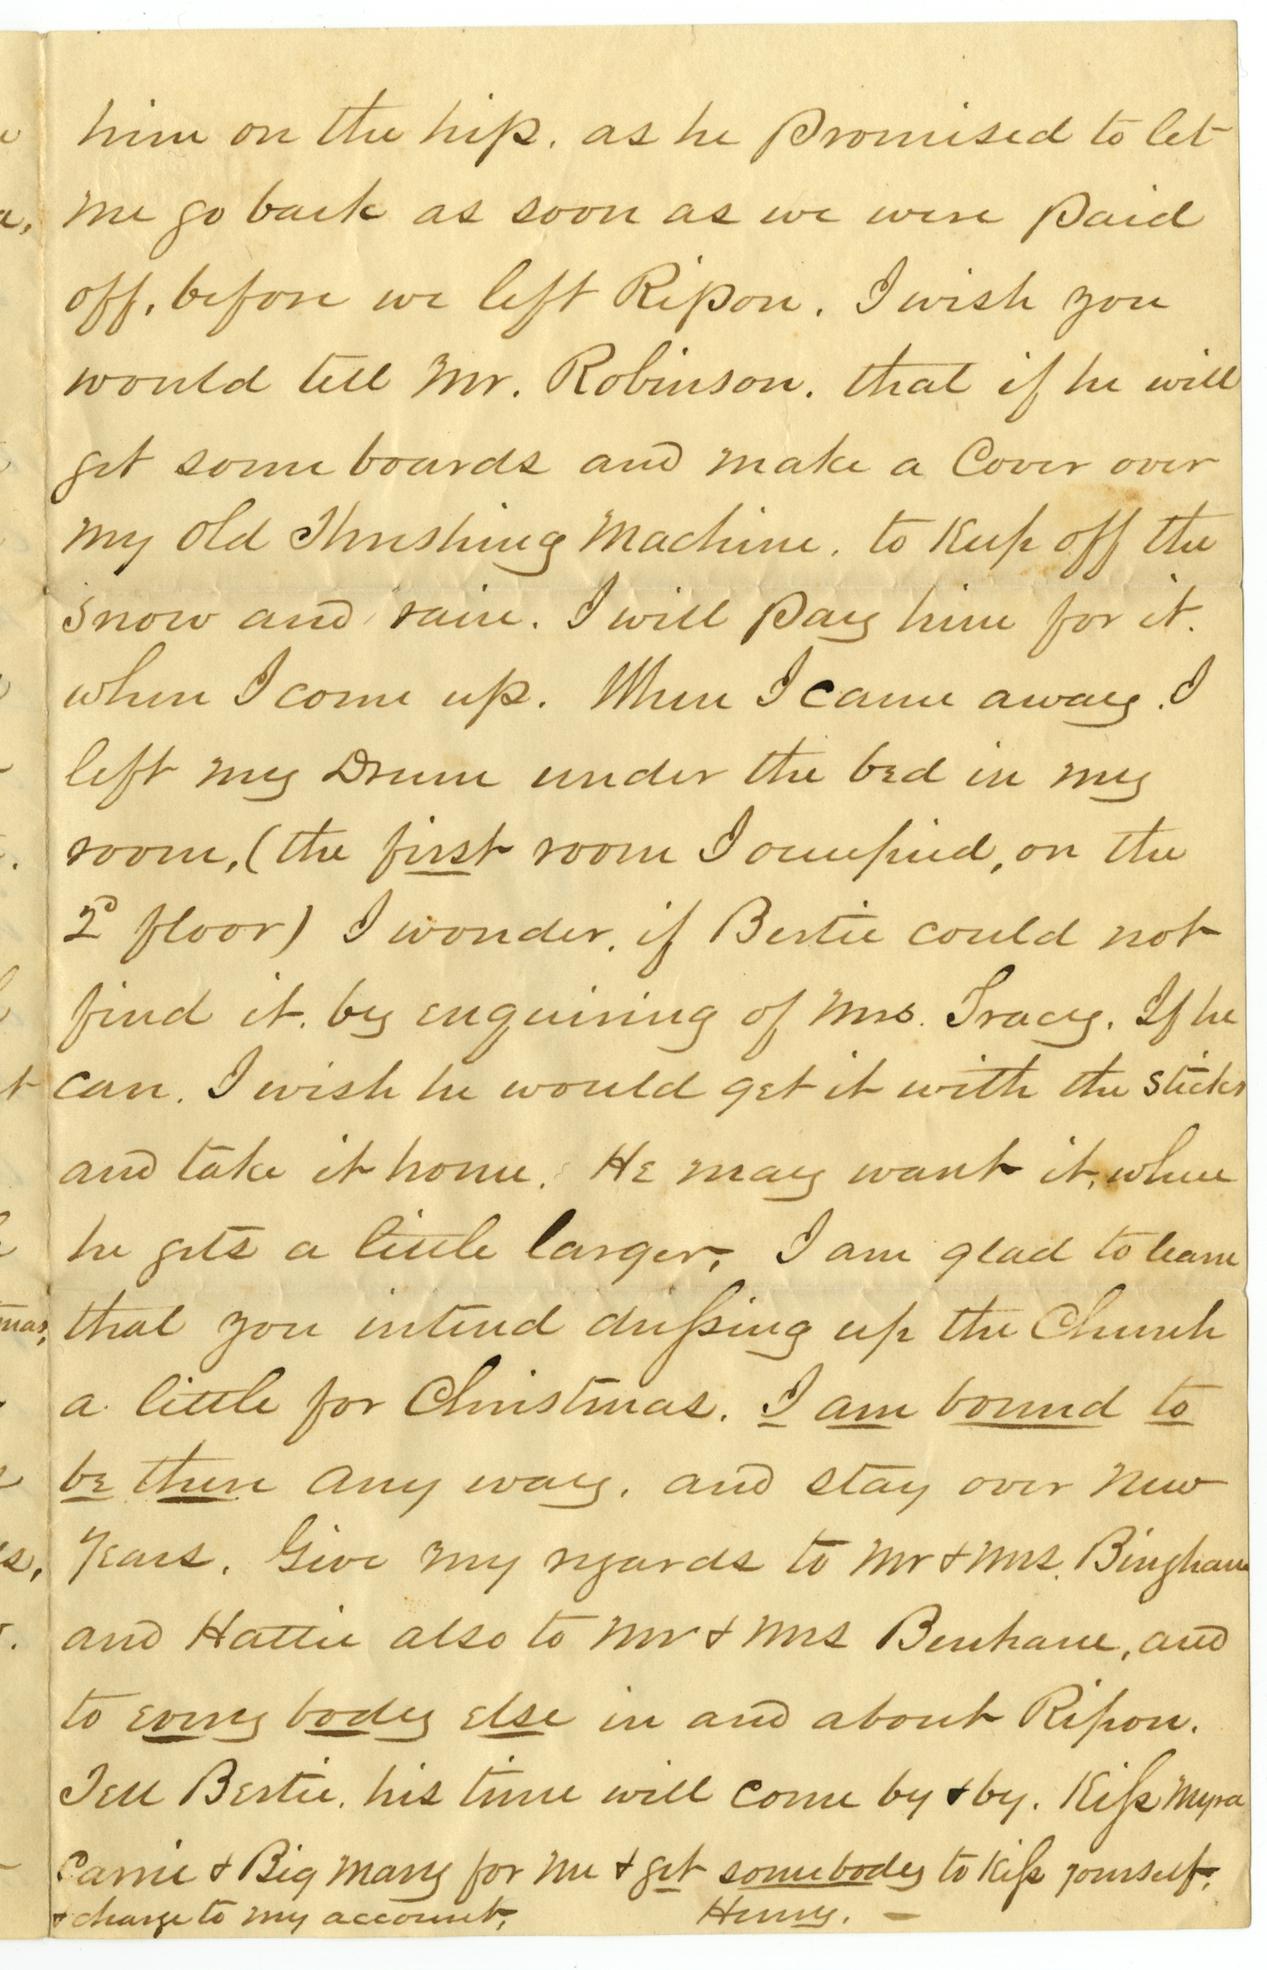 him on the hip. as he promised to let
me go back as soon as we were paid
off, before we left Ripon. I wish you
would tell Mr. Robinson. that if he will
get some boards and make a Cover over
my old Thrishing Machine. to Keep off the
snow and rain. I will pay him for it.
when I come up. When I came away. I
left my Drum under the bed in my
room, (the first room I occupied, on the
2d floor) I wonder, if Bertie could not
find it. by enquiring of Mrs. Tracy. If he
can. I wish he would get it with the sticks
and take it home. He may want it, when
he gets a little larger, I am glad to learn
that you intend dressing up the Church
a little for Christmas. I am bound to
be there any way. and stay over New
Years. Give my regards to Mr & Mrs. Bingham
and Hattie also to Mr & Mrs Benham, and
to every body else in and about Ripon.
Tell Bertie. his time will come by & by. Kiss Myra
Carrie & Big Mary for me & get somebody to Kiss yourself,
& charge to my account, Henry. –